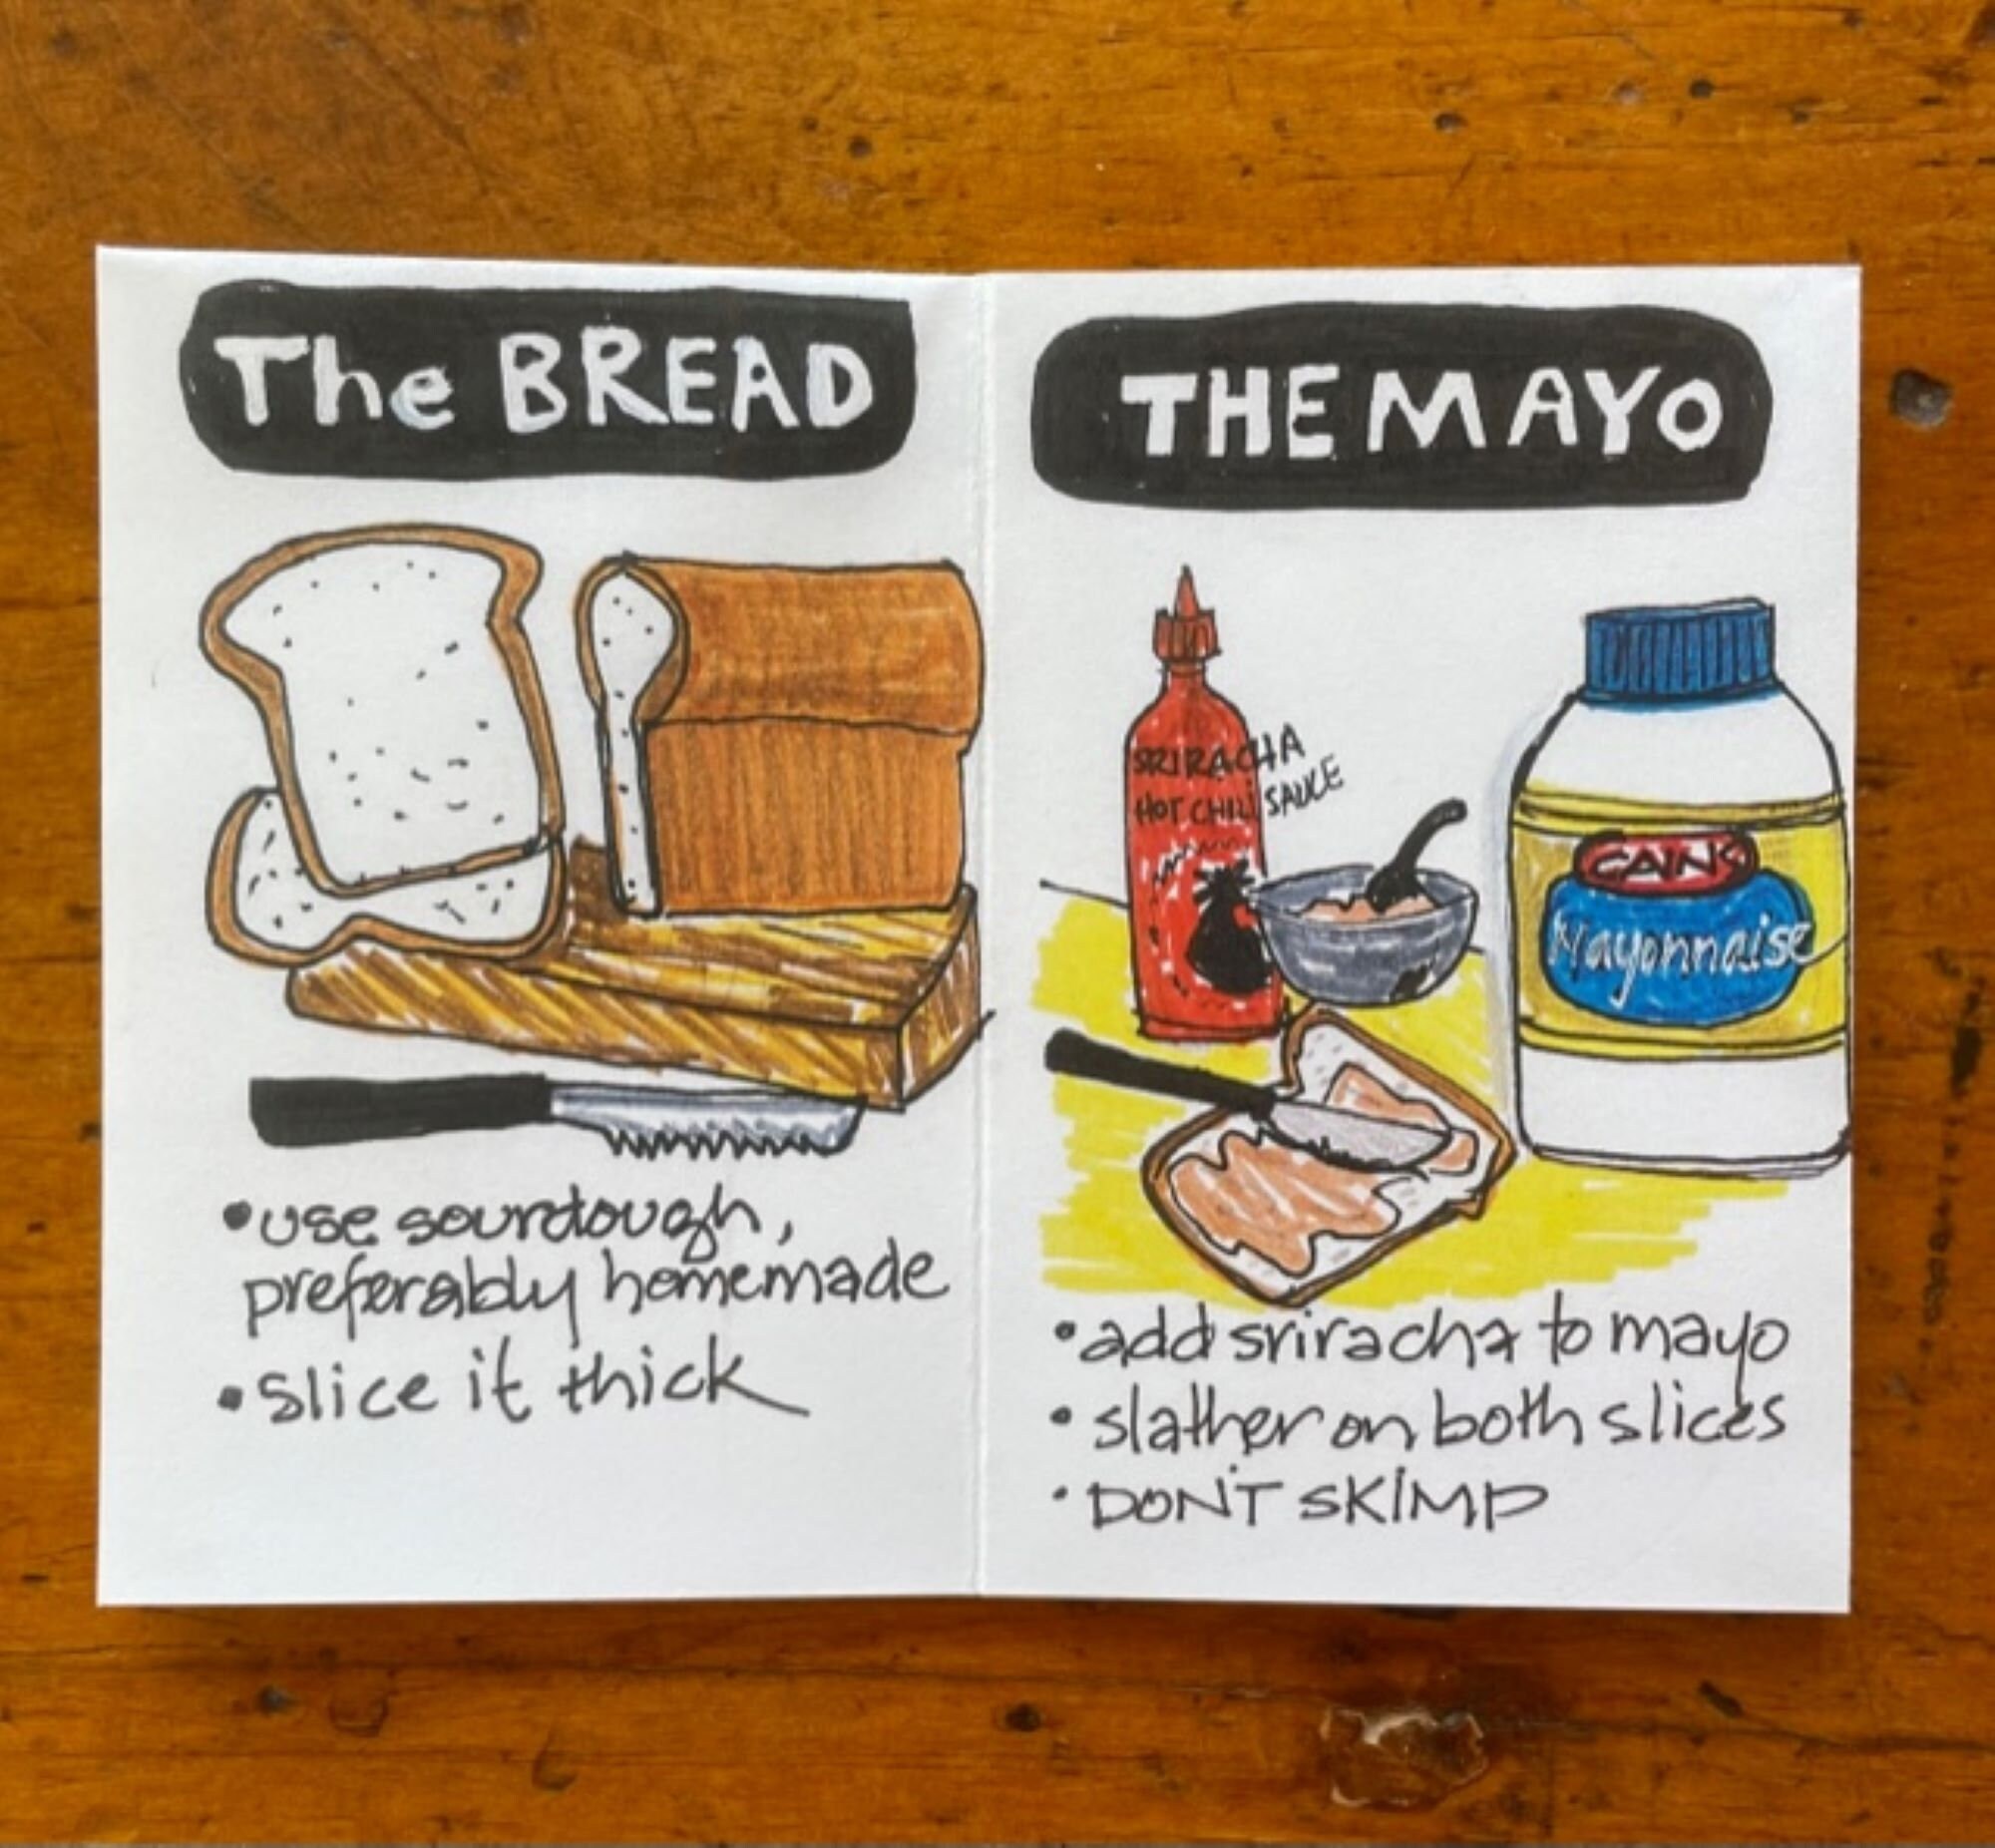 The BREAD
• use sourdough,
preferably homemade
• Slice it thick
THE MAYO
SRIRACHA
HOT CHILI SAUCE
CAINS
Mayonnaise
• add sriracha to mayo
• slather on both slices
• DON'T SKIMP